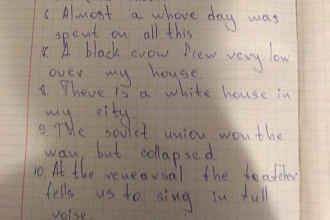 6. Almost a whove day was
spent on all this
7. A black crow frew very low
over my house.
8. There is a white house in
my city.
9. The soviet union won the
war, but collapsed.
10. At the rehearsal the teatcher
tells us to sing in full
voise.